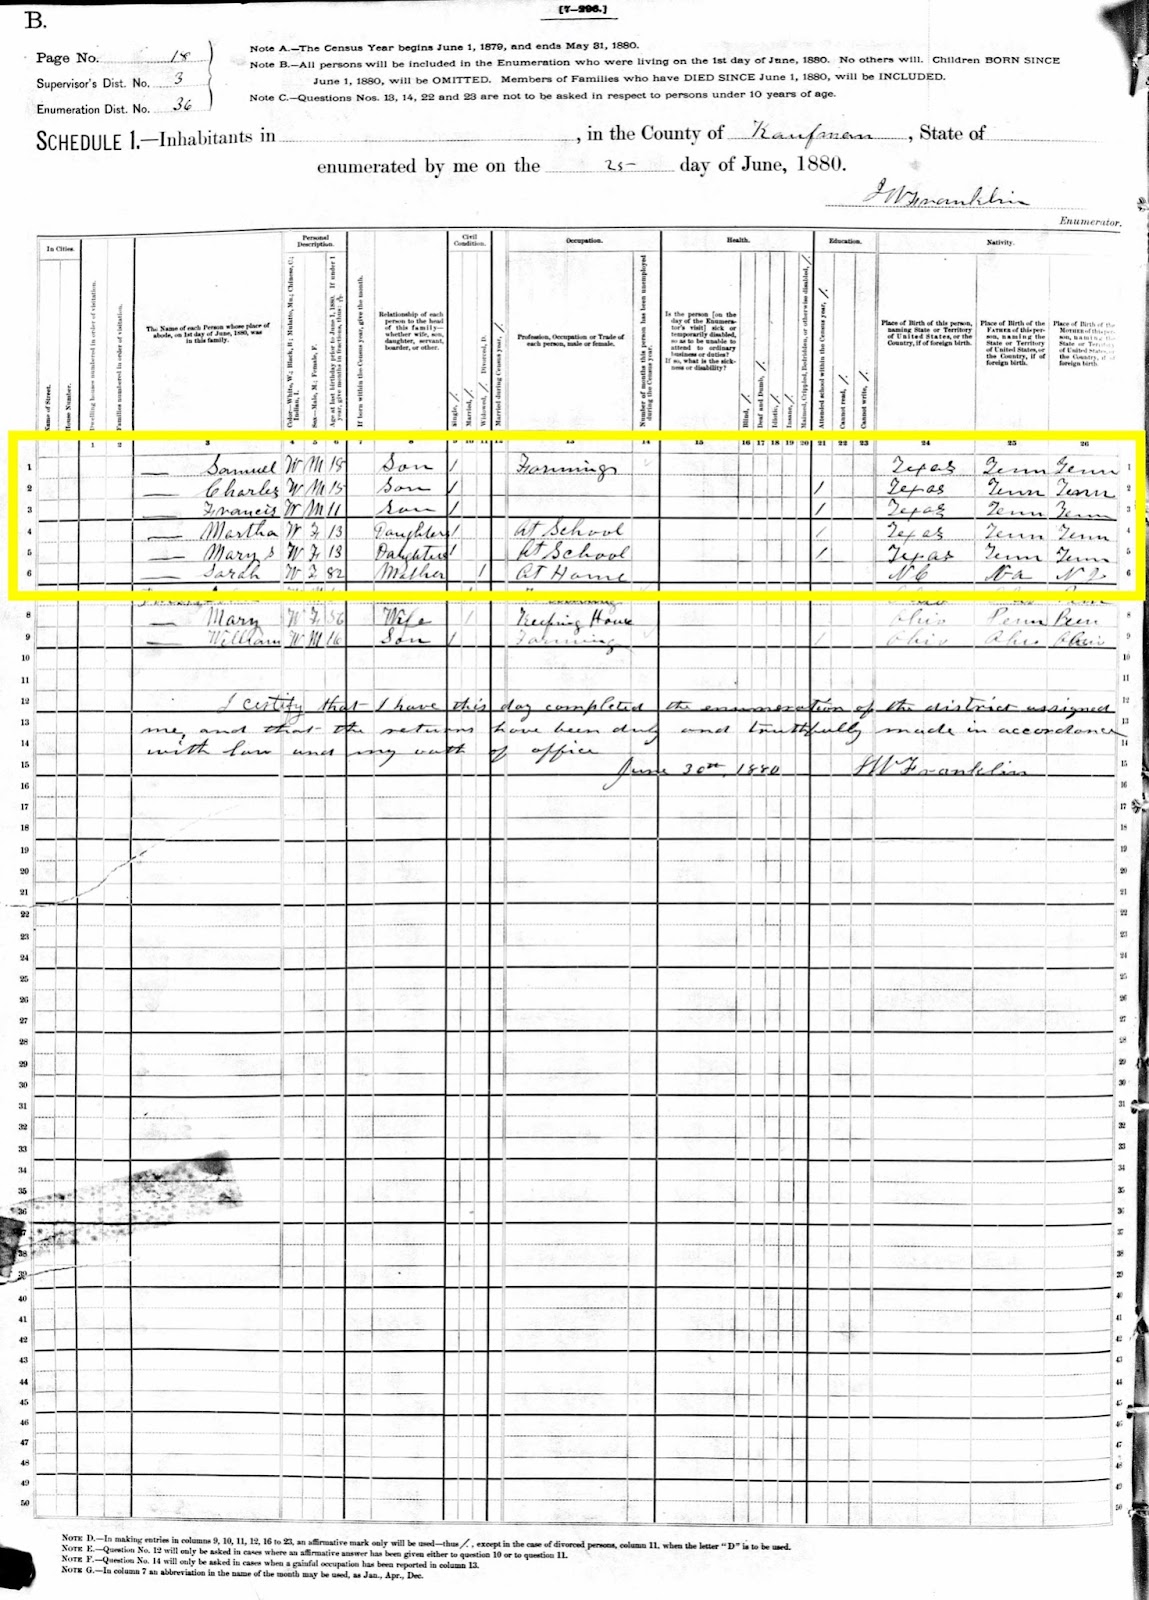 B.
[7-296.]
Page No. 18
Supervisor's Dist. No. 3
Enumeration Dist. No. 36
Note A.—The Census Year begins June 1, 1879, and ends May 31, 1880.
Note B.—All persons will be included in the Enumeration who were living on the 1st day of June, 1880. No others will. Children BORN SINCE
June 1, 1880, will be OMITTED. Members of Families who have DIED SINCE June 1, 1880, will be INCLUDED.
Note C.—Questions Nos. 13, 14, 22 and 23 are not to be asked in respect to persons under 10 years of age.
SCHEDULE 1.—Inhabitants in , in the County of Kaufman , State of
enumerated by me on the 25 day of June, 1880.
J W Franklin
Enumerator.
In Cities. Personal Description. Civil Condition. Occupation. Health. Education. Nativity.
Name of Street.
House Number.
Dwelling houses numbered in order of visitation.
Families numbered in order of visitation.
The Name of each Person whose place of abode, on 1st day of June, 1880, was in this family.
Color—White, W.; Black, B.; Mulatto, Mu.; Chinese, C.; Indian, I.
Sex—Male, M.; Female, F.
Age at last birthday prior to June 1, 1880. If under 1 year, give months in fractions, thus:
If born within the Census year, give the month.
Relationship of each person to the head of this family—whether wife, son, daughter, servant, boarder, or other.
Single, /.
Married, /.
Widowed, /. Divorced, D.
Married during Census year, /.
Profession, Occupation or Trade of each person, male or female.
Number of months this person has been unemployed during the Census year.
Is the person [on the day of the Enumerator's visit] sick or temporarily disabled, so as to be unable to attend to ordinary business or duties? If so, what is the sickness or disability?
Blind, /.
Deaf and Dumb, /.
Idiotic, /.
Insane, /.
Maimed, Crippled, Bedridden, or otherwise disabled, /.
Attended school within the Census year, /.
Cannot read, /.
Cannot write, /.
Place of Birth of this person, naming State or Territory of United States, or the Country, if of foreign birth.
Place of Birth of the FATHER of this person, naming the State or Territory of United States, or the Country, if of foreign birth.
Place of Birth of the MOTHER of this person, naming the State or Territory of United States, or the Country, if of foreign birth.
1 2 3 4 5 6 7 8 9 10 11 12 13 14 15 16 17 18 19 20 21 22 23 24 25 26
1 — Samuel W M 18 Son / Farming Texas Tenn Tenn 1
2 — Charles W M 15 Son / / Texas Tenn Tenn 2
3 — Francis W M 11 Son / / Texas Tenn Tenn 3
4 — Martha W F 13 Daughter / At School / Texas Tenn Tenn 4
5 — Mary S W F 13 Daughter / At School / Texas Tenn Tenn 5
6 — Sarah W F 82 Mother / At Home NC Na NJ 6
8 Mary W F 36 Wife / Keeping House Ohio Penn Penn 8
9 William W M 16 Son / Farming / Ohio Ohio Ohio 9
10 10
11 11
12 I certify that I have this day completed the enumeration of the district assigned 12
13 me, and that the returns have been duly and truthfully made in accordance 13
14 with law and my oath of office 14
15 June 30th, 1880 J W Franklin 15
16 16
17 17
18 18
19 19
20 20
21 21
22 22
23 23
24 24
25 25
26 26
27 27
28 28
29 29
30 30
31 31
32 32
33 33
34 34
35 35
36 36
37 37
38 38
39 39
40 40
41 41
42 42
43 43
44 44
45 45
46 46
47 47
48 48
49 49
50 50
NOTE D.—In making entries in columns 9, 10, 11, 12, 16 to 23, an affirmative mark only will be used—thus /, except in the case of divorced persons, column 11, when the letter "D" is to be used.
NOTE E.—Question No. 12 will only be asked in cases where an affirmative answer has been given either to question 10 or to question 11.
NOTE F.—Question No. 14 will only be asked in cases when a gainful occupation has been reported in column 13.
NOTE G.—In column 7 an abbreviation in the name of the month may be used, as Jan., Apr., Dec.